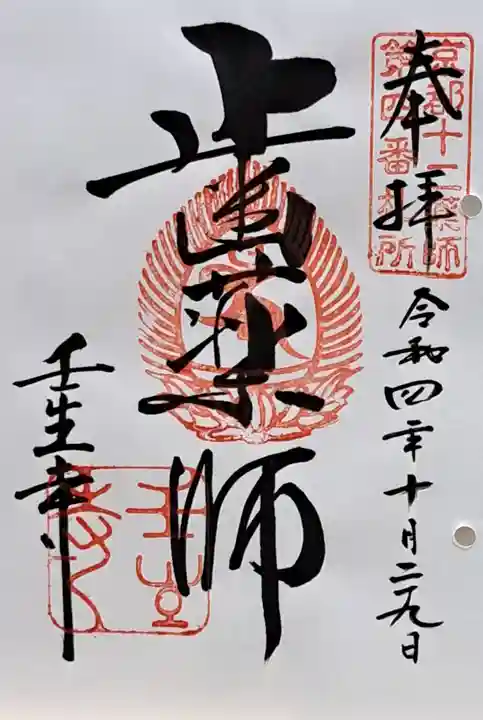 奉拝
京都十二薬師
第四番札所
令和四年十月二十九日
歯薬師
壬生寺